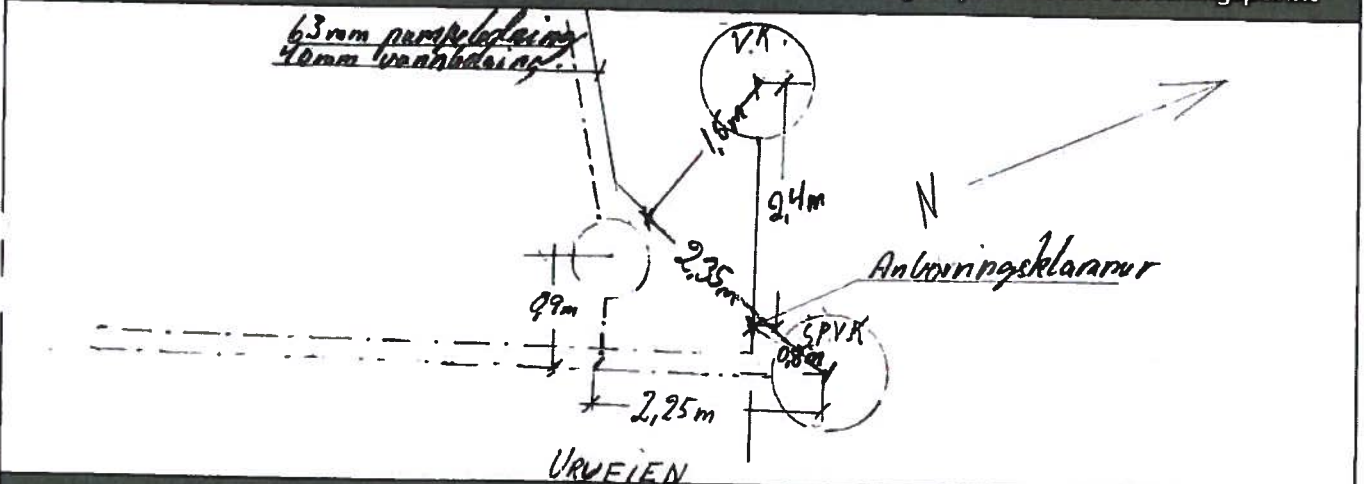 63mm pumpeledning
40mm vannledning.
V.K.
1,6m
2,4m
N
2,35m
Anboringsklammer
0,9m
SPVK
0,8m
2,25m
URVEIEN